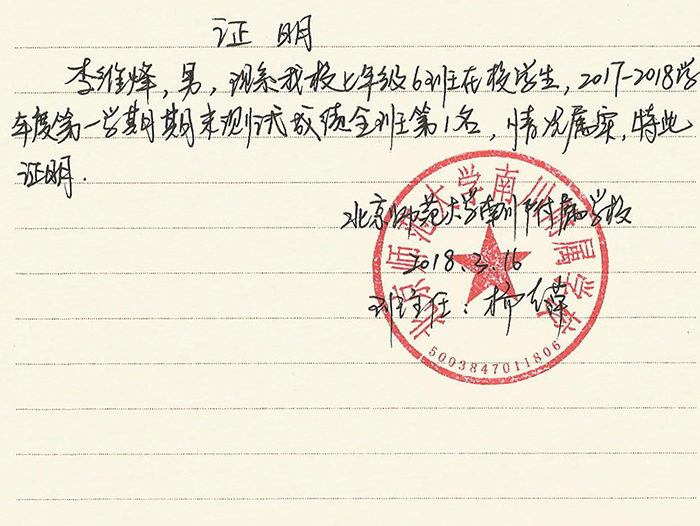 证 明
李维烽，男，现系我校七年级6班在校学生，2017-2018学
年度第一学期期末测试成绩全班第1名，情况属实，特此
证明.
北京师范大学南川附属学校
2018.3.16
班主任：柳
北京师范大学南川附属学校
5003847011806